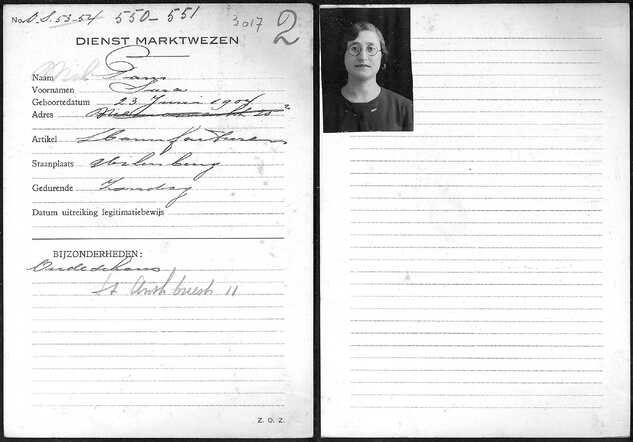 No. O.S. 53-54 550-551 3017 2
DIENST MARKTWEZEN
Naam Pans
Voornamen Sura
Geboortedatum 23 Juni 1907
Adres
Artikel
Staanplaats Uilenburg
Gedurende Zondag
Datum uitreiking legitimatiebewijs
BIJZONDERHEDEN:
Oudeschans
St Anth breestr 11
Z. O. Z.